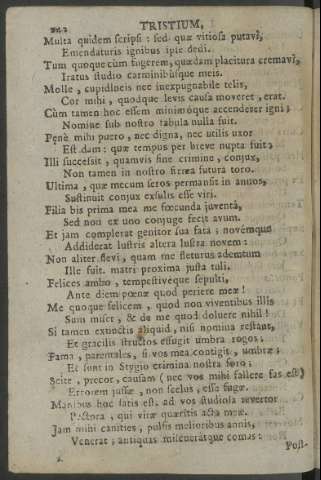 TRISTIUM,
Multa quidem scripsi : sed quæ vitiosa putavi,
Emendaturis ignibus ipse dedi.
Tum quoque cùm fugerem, quædam placitura cremavi,
Iratus studio carminibusque meis.
Molle, cupidineis nec inexpugnabile telis,
Cor mihi, quodque levis causa moveret, erat.
Cùm tamen hoc essem minimóque accenderer igni;
Nomine sub nostro fabula nulla fuit.
Penè mihi puero, nec digna, nec utilis uxor
Est data: quæ tempus per breve nupta fuit;
Illi successit, quamvis sine crimine, conjux,
Non tamen in nostro firma futura toro.
Ultima, quæ mecum seros permansit in annos,
Sustinuit conjux exsulis esse viri.
Filia bis prima mea me fœcunda juventâ,
Sed non ex uno conjuge fecit avum.
Et jam complerat genitor sua fata; novémque
Addiderat lustris altera lustra novem:
Non aliter flevi, quam me fleturus ademtum
Ille fuit. matri proxima justa tuli.
Felices ambo, tempestiveque sepulti,
Ante diem pœnæ quod periere meæ!
Me quoque felicem, quod non viventibus illis
Sum miser, & de me quod doluere nihil!
Si tamen extinctis aliquid, nisi nomina restant,
Et gracilis structos effugit umbra rogos;
Fama, parentales, si vos mea contigit, umbræ;
Et sunt in Stygio crimina nostra foro;
Scite, precor, causam (nec vos mihi fallere fas est)
Errorem jussæ, non scelus, esse fugæ.
Manibus hoc satis est. ad vos studiosa revertor
Pectora, qui vitæ quæritis acta meæ.
Jam mihi canities, pulsis melioribus annis,
Venerat; antiquas miscueratque comas:
Post-